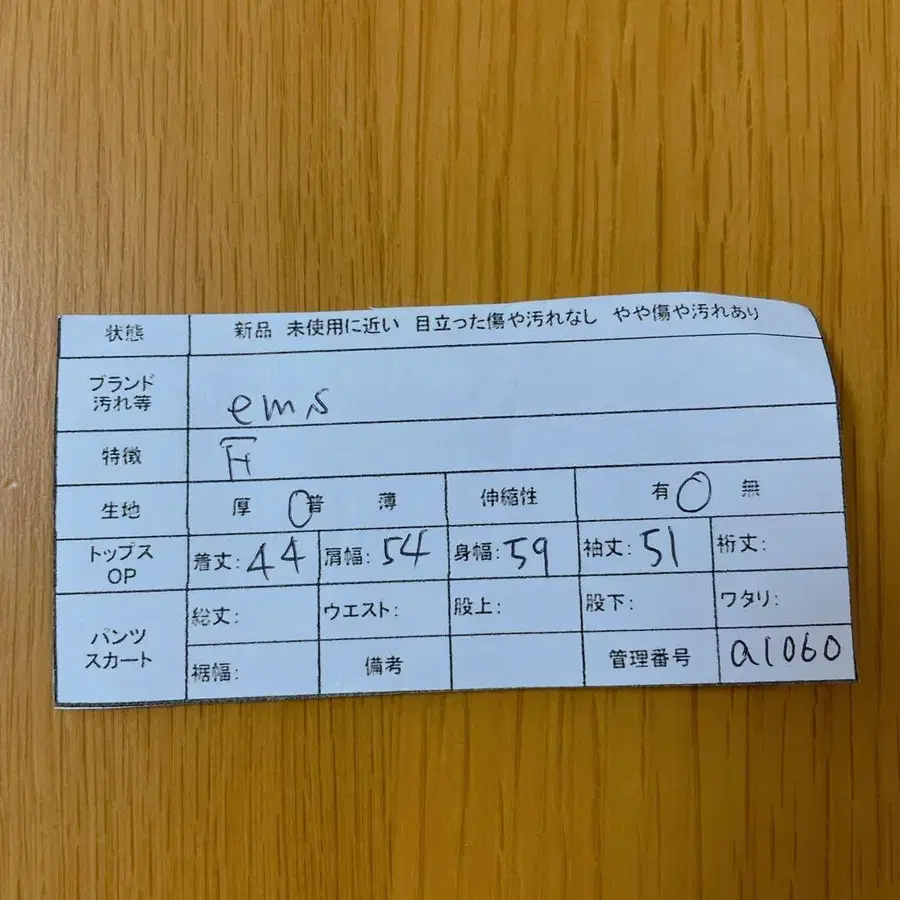 状態 新品 未使用に近い 目立った傷や汚れなし やや傷や汚れあり
ブランド
汚れ等
ems
特徴
生地 厚 普 薄 伸縮性 有 無
トップス
OP
着丈: 44 肩幅: 54 身幅: 59 袖丈: 51 裄丈:
パンツ
スカート
総丈: ウエスト: 股上: 股下: ワタリ:
裾幅: 備考 管理番号 a1060